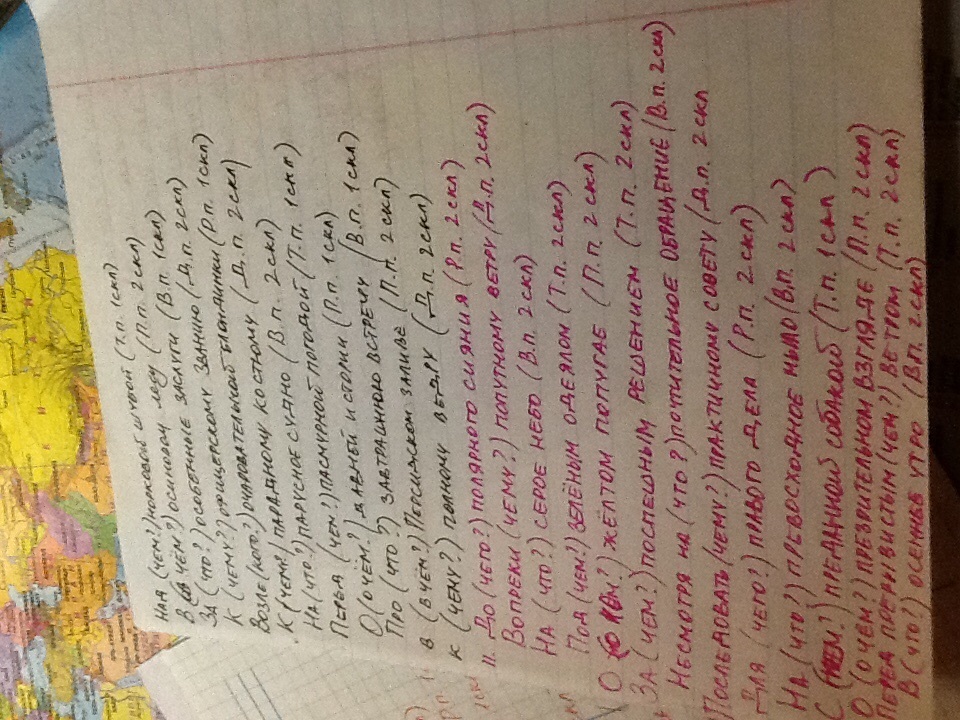 НАД (ЧЕМ?) НОРКОВОЙ ШУБОЙ (Т.П. 1СКЛ)
В ЧЁМ?) ОСИНОВОМ (П.П. 2 СКЛ)
ЗА (ЧТО?) ОСОБЕННЫЕ ЗАСЛУГИ (В.П. 1СКЛ)
К (ЧЕМУ?) ОФИЦЕРСКОМУ ЗВАНИЮ (Д.П. 2СКЛ)
ВОЗЛЕ (КОГО?) ОЧАРОВАТЕЛЬНОЙ БЛОНДИНКИ (Р.П. 1СКЛ)
К (ЧЕМУ) ПАРАДНОМУ КОСТЮМУ (Д.П. 2СКЛ)
НА (ЧТО?) ПАРУСНОЕ СУДНО (В.П. 2СКЛ)
ПЕРЕД (ЧЕМ?) ПАСМУРНОЙ ПОГОДОЙ (Т.П. 1СКЛ)
О (О ЧЁМ?) ДАВНЕЙ ИСТОРИИ (П.П. 1СКЛ)
ПРО (ЧТО?) ЗАВТРАШНЮЮ ВСТРЕЧУ (В.П. 1СКЛ)
В (В ЧЁМ?) ПЕРСИДСКОМ ЗАЛИВЕ (П.П. 2 СКЛ)
К (ЧЕМУ?) ПОЛНОМУ ВЕДРУ (Д.П. 2СКЛ)
ДО (ЧЕГО?) ПОЛЯРНОГО СИЯНИЯ (Р.П. 2 СКЛ)
ВОПРЕКИ (ЧЕМУ?) ПОПУТНОМУ ВЕТРУ (Д.П. 2СКЛ)
НА (ЧТО?) СЕРОЕ НЕБО (В.П. 2СКЛ)
ПОД (ЧЕМ?) ЗЕЛЁНЫМ ОДЕЯЛОМ (Т.П. 2СКЛ)
О КОМ?) ЖЁЛТОМ ПОПУГАЕ (П.П. 2 СКЛ)
ЗА (ЧЕМ?) ПОСПЕШНЫМ РЕШЕНИЕМ (Т.П. 2СКЛ)
НЕСМОТРЯ НА (ЧТО?) ПОЧТИТЕЛЬНОЕ ОБРАЩЕНИЕ (В.П. 2СКЛ)
ПОСЛЕДОВАТЬ (ЧЕМУ?) ПРАКТИЧНОМУ СОВЕТУ (Д.П. 2 СКЛ
ДЛЯ (ЧЕГО?) ПРАВОГО ДЕЛА (Р.П. 2 СКЛ)
НА (ЧТО?) ПРЕВОСХОДНОЕ МЫЛО (В.П. 2 СКЛ)
С (КЕМ?) ПРЕДАННОЙ СОБАКОЙ (Т.П. 1СКЛ)
О (О ЧЁМ?) ПРЕЗРИТЕЛЬНОМ ВЗГЛЯДЕ (П.П. 2СКЛ)
ПЕРЕД ПРЕРЫВИСТЫМ (ЧЕМ?) ВЕТРОМ (Т.П. 2 СКЛ)
В (ЧТО?) ОСЕННЕЕ УТРО (В.П. 2СКЛ)